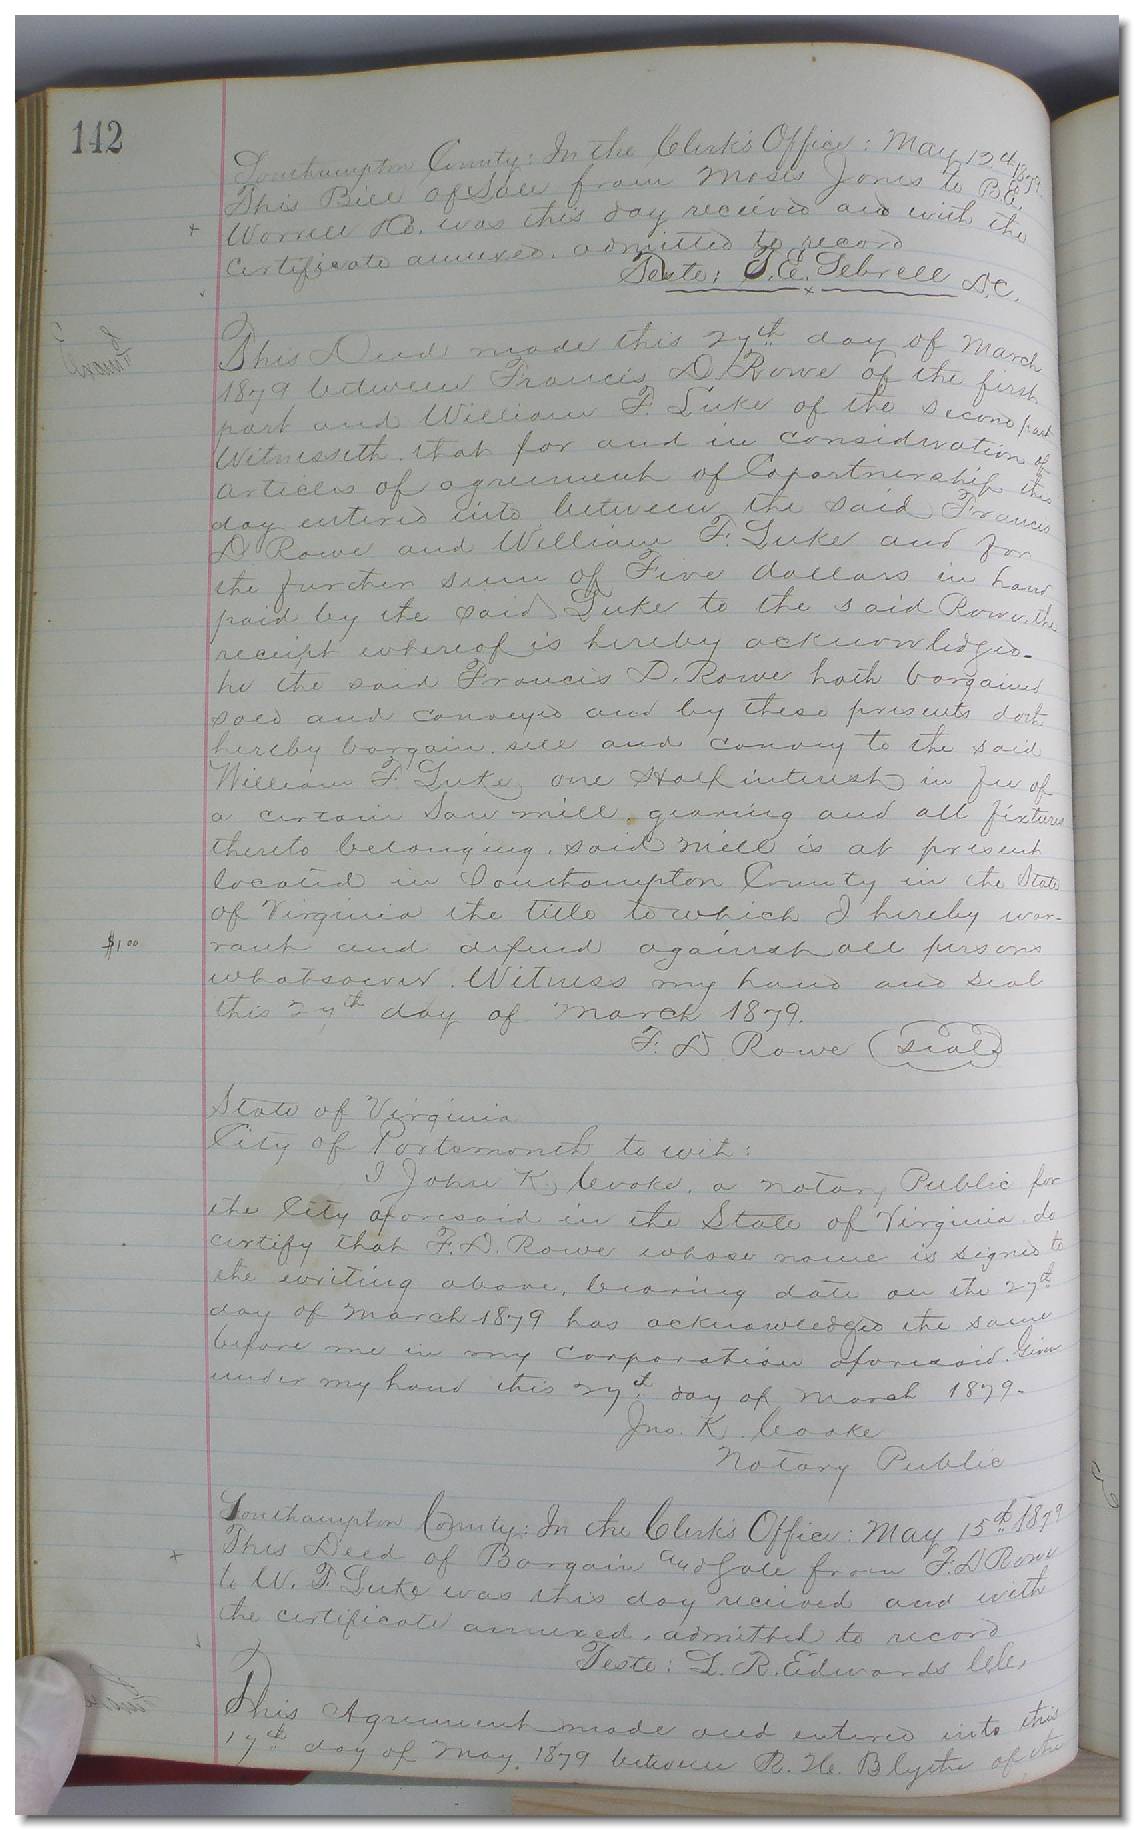 142
Southampton County: In the Clerk's Office: May 13th 1879.
This Bill of Sale from Moses Jones to B.E.
Worrell &Co. was this day received and with the
certificate annexed, admitted to record
Teste: T.E. Sebrell D.C.
This Deed made this 27th day of March
1879 between Francis D. Rowe of the first
part and William F. Luke of the second part
Witnesseth. that for and in consideration of
articles of agreement of Copartnership this
day entered into between the said Francis
D Rowe and William F. Luke and for
the further sum of Five dollars in hand
paid by the said Luke to the said Rowe, the
receipt whereof is hereby acknowledged.
he the said Francis D. Rowe hath bargained
sold and conveyed and by these presents doth
hereby bargain, sell and convey to the said
William F. Luke, one Half interest in fee of
a certain Saw mill, gearing and all fixtures
thereto belonging, said mill is at present
located in Southampton County in the State
of Virginia the title to which I hereby war-
$1.00 rant and defend against all persons
whatsoever. Witness my hand and seal
this 27th day of March 1879.
F. D Rowe (Seal)
State of Virginia
City of Portsmouth to wit:
I John K. Cooke, a notary Public for
the City aforesaid in the State of Virginia do
certify that F.D. Rowe whose name is signed to
the writing above, bearing date on the 27th
day of March 1879 has acknowledged the same
before me in my corporation aforesaid. Given
under my hand this 27th day of March 1879.
Jno. K. Cooke
Notary Public
Southampton County: In the Clerk's Office: May 15th 1879
This Deed of Bargain and Sale from F.D Rowe
to W. F. Luke was this day received and with
the certificate annexed, admitted to record
Teste: L. R. Edwards Clk.
This Agreement made and entered into this
17th day of May, 1879 between R. H. Blythe of the